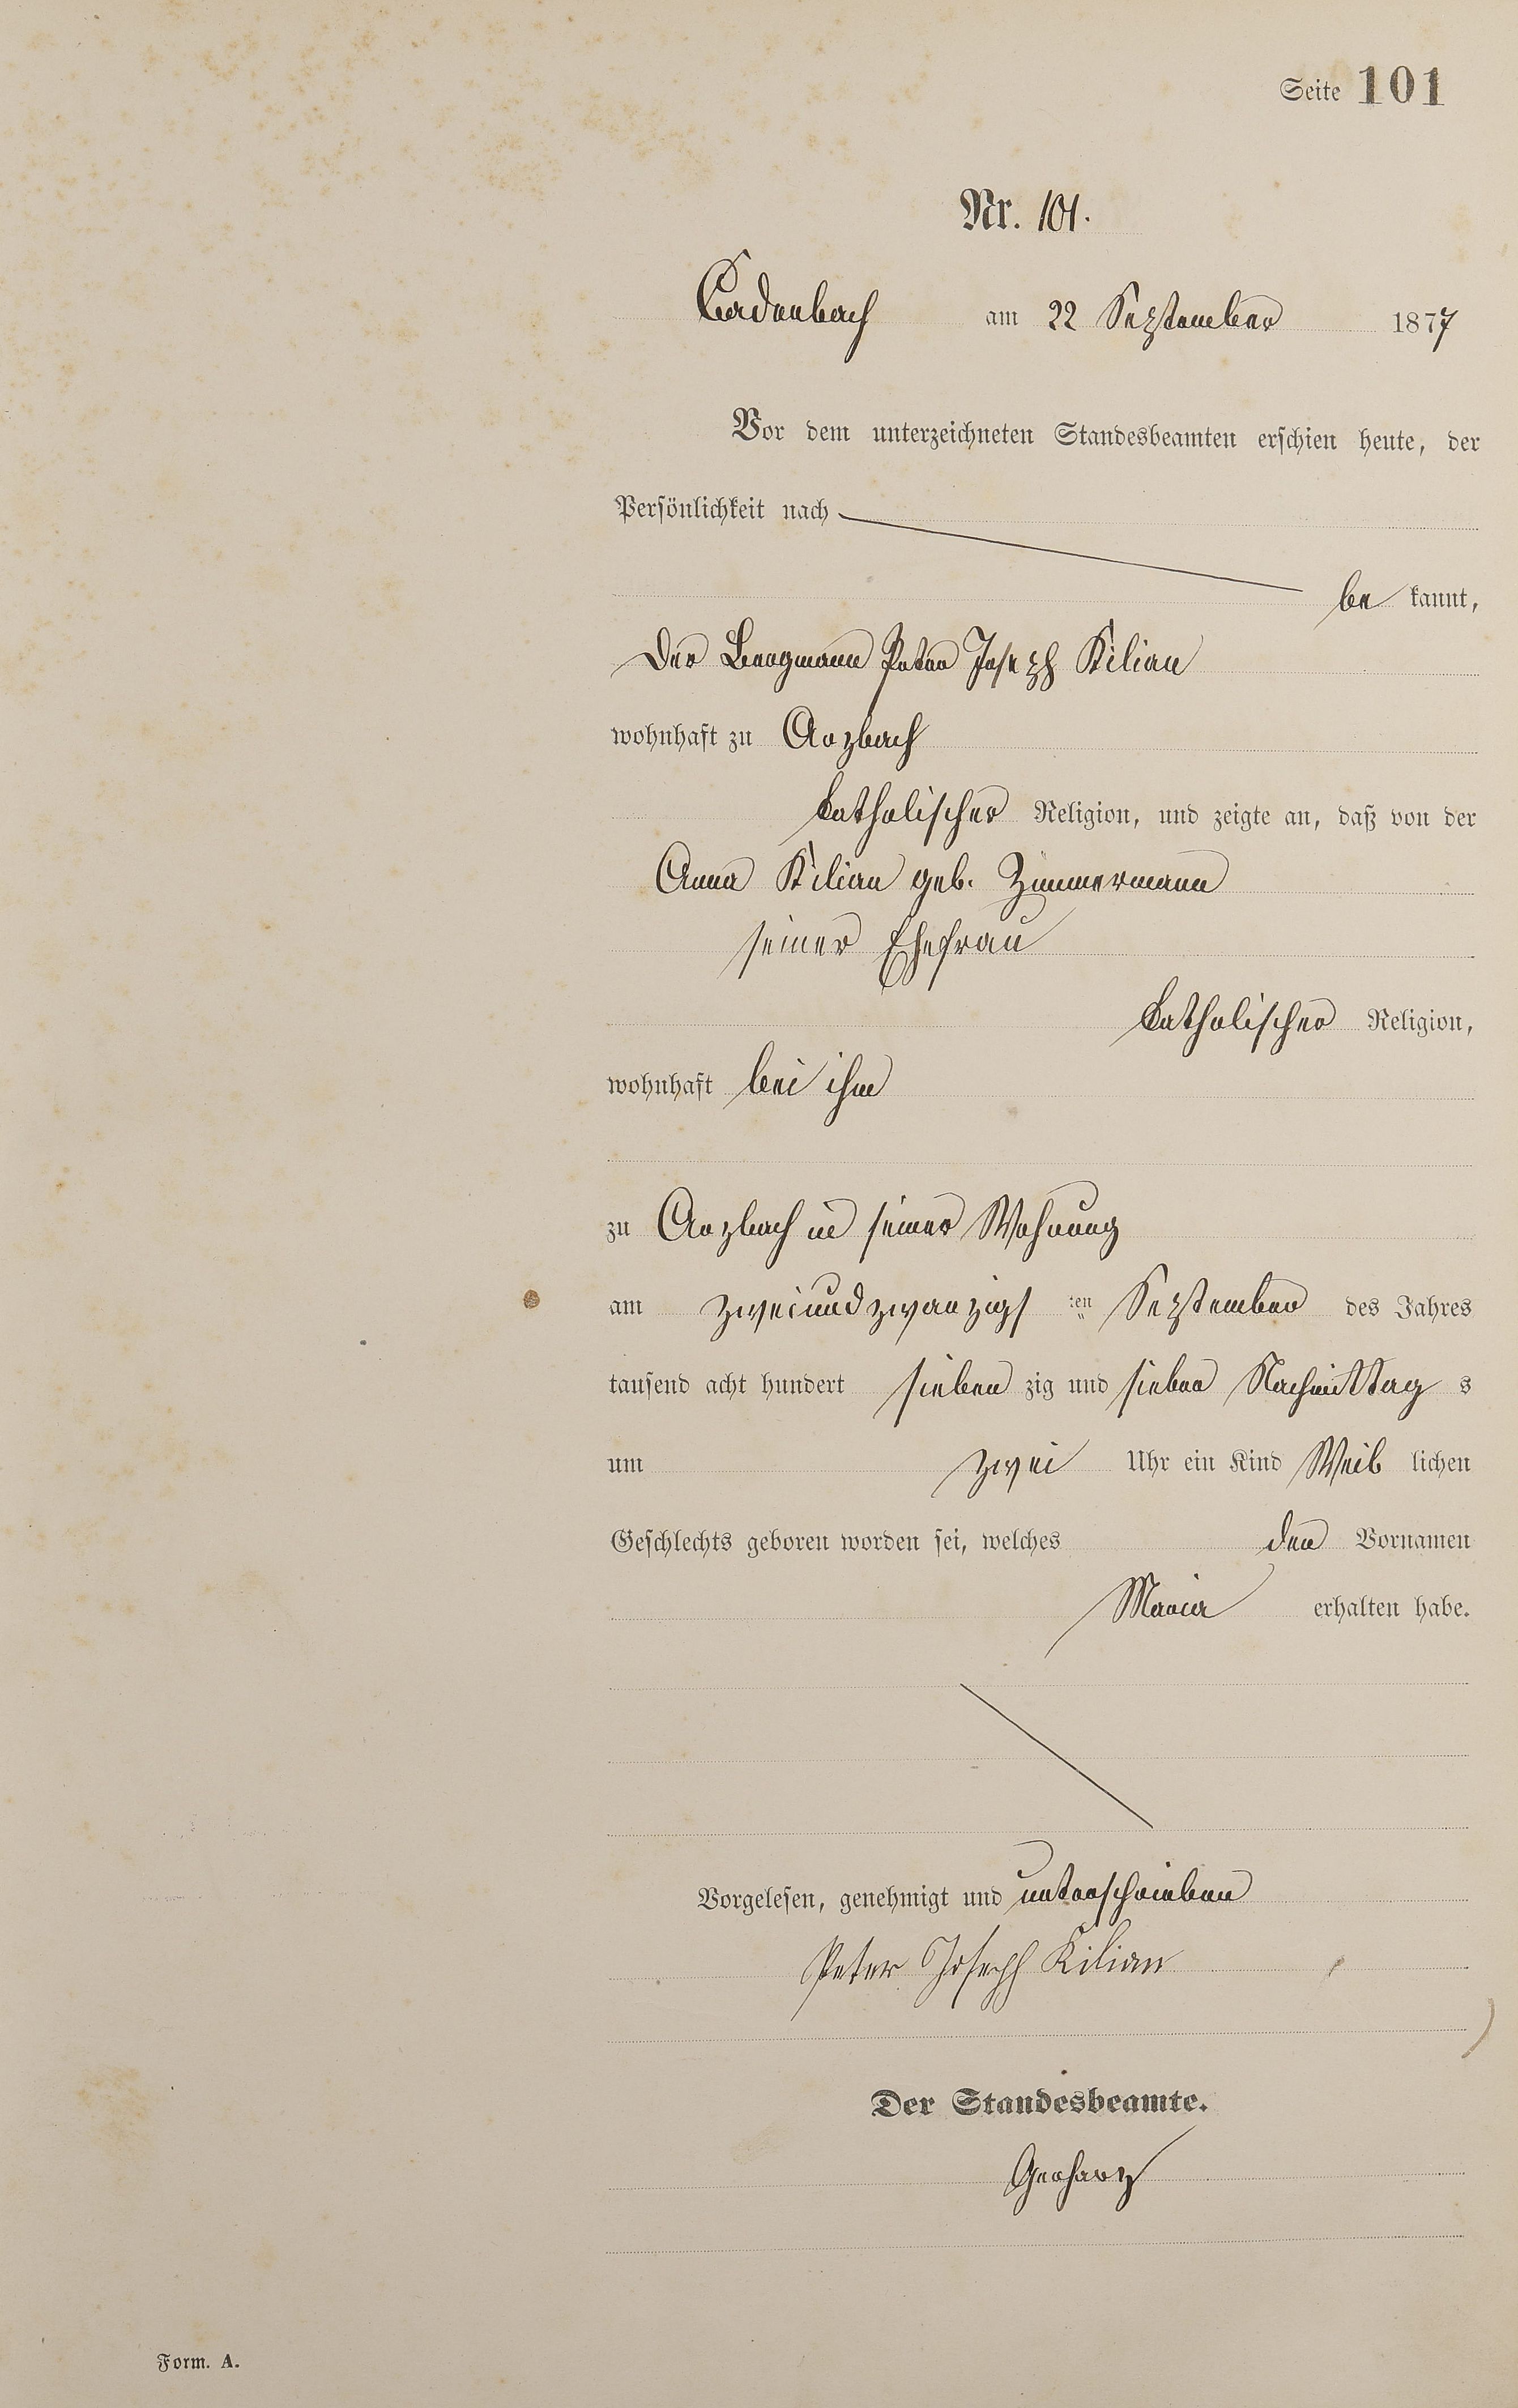 Seite 101
Nr. 101.
Cadenbach am 22 September 1877
Vor dem unterzeichneten Standesbeamten erschien heute, der
Persönlichkeit nach
be kannt,
der Bergmann Peter Joseph Kilian
wohnhaft zu Arzbach
katholischer Religion, und zeigte an, daß von der
Anna Kilian geb. Zimmermann
seiner Ehefrau
katholischer Religion,
wohnhaft bei ihm
zu Arzbach in seiner Wohnung
am zweiundzwanzigs ten September des Jahres
tausend acht hundert sieben zig und sieben Nachmittag s
um zwei Uhr ein Kind Weib lichen
Geschlechts geboren worden sei, welches den Vornamen
Maria erhalten habe.
Vorgelesen, genehmigt und unterschrieben
Peter Joseph Kilian
Der Standesbeamte.
Gerharz
Form. A.